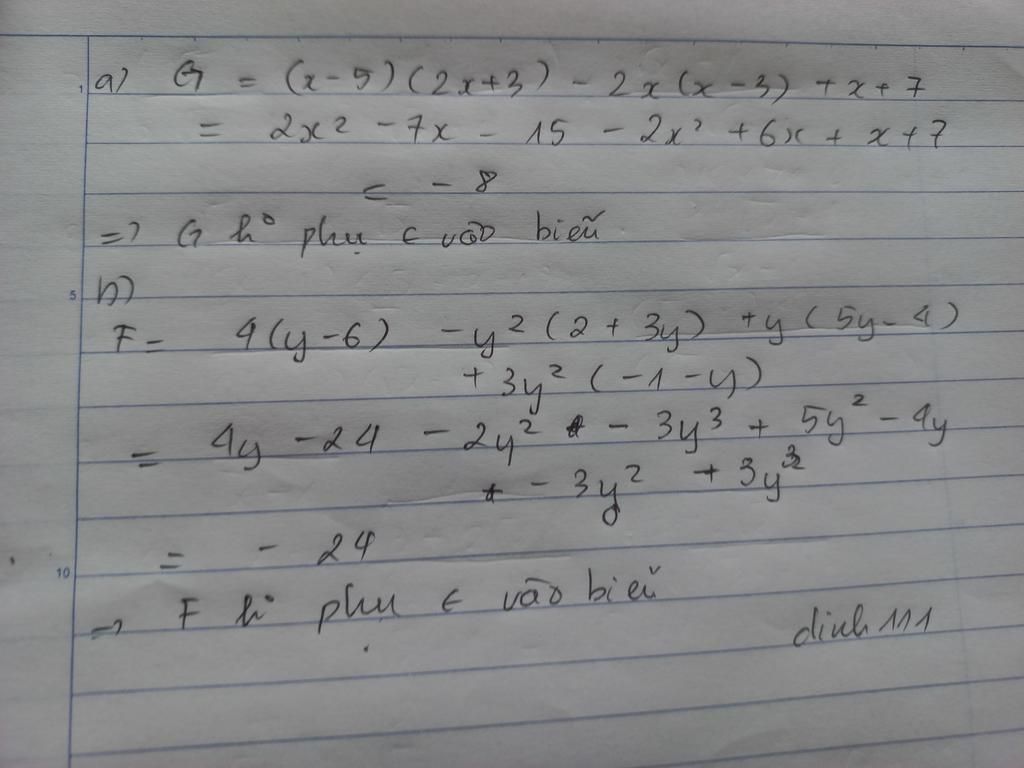 1 a) G = (x-5)(2x+3) - 2x(x-3) + x + 7
= 2x² - 7x - 15 - 2x² + 6x + x + 7
= - 8
=> G ko phụ ∈ vào biến
5 b)
F = 4(y-6) - y²(2 + 3y) + y(5y-4)
+ 3y²(-1-y)
= 4y - 24 - 2y² - 3y³ + 5y² - 4y
- 3y² + 3y³
= - 24
10
=> F ko phụ ∈ vào biến
dinh 111